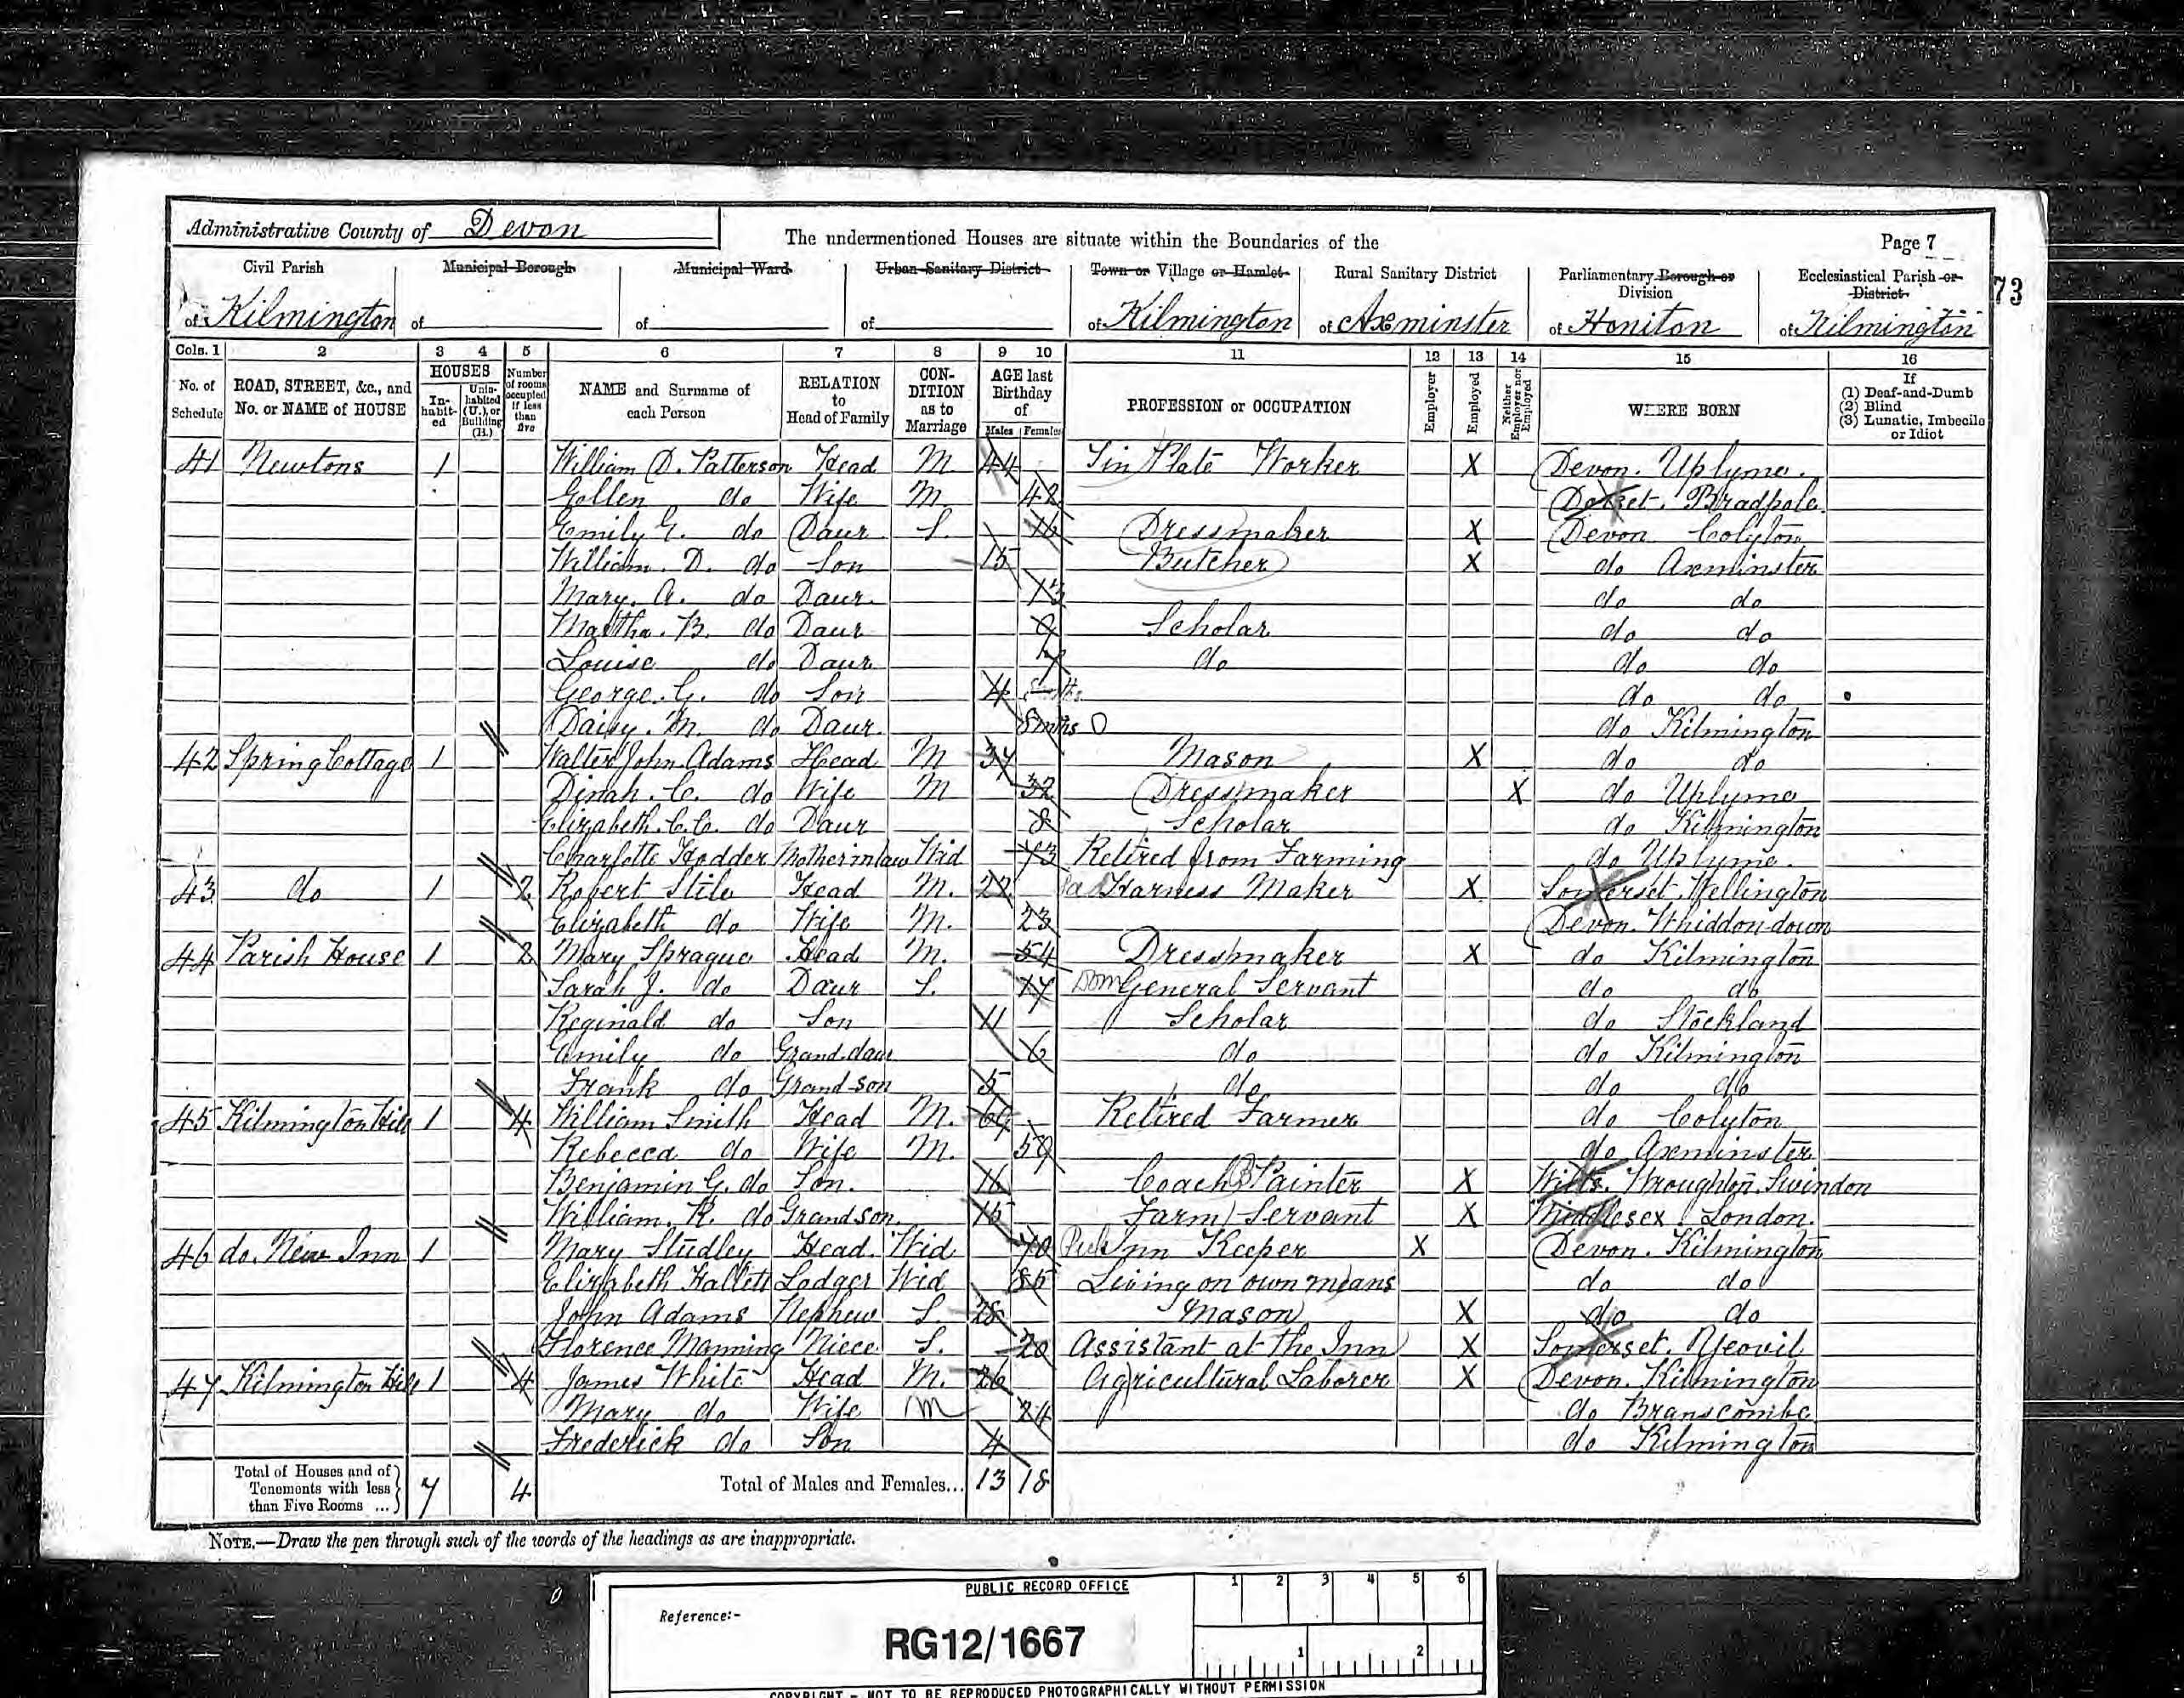 Administrative County of Devon
The undermentioned Houses are situate within the Boundaries of the
Page 7
73
Civil Parish of Kilmington
Municipal Borough of
Municipal Ward of
Urban Sanitary District of
Town or Village or Hamlet of Kilmington
Rural Sanitary District of Axminster
Parliamentary Borough or Division of Honiton
Ecclesiastical Parish or District of Kilmington
Cols. 1 2 3 4 5 6 7 8 9 10 11 12 13 14 15 16
No. of Schedule
ROAD, STREET, &c., and No. or NAME of HOUSE
HOUSES
In-habit-ed
Unin-habited (U.), or Building (B.)
Number of rooms occupied if less than five
NAME and Surname of each Person
RELATION to Head of Family
CON-DITION as to Marriage
AGE last Birthday of
Males Females
PROFESSION or OCCUPATION
Employer
Employed
Neither Employer nor Employed
WHERE BORN
If (1) Deaf-and-Dumb (2) Blind (3) Lunatic, Imbecile or Idiot
41 Newtons 1 William D. Patterson Head M 44 Tin Plate Worker X Devon. Uplyme.
do Wife M 42 Dorset. Bradpole.
Emily G. do Daur S. 16 Dressmaker X Devon Colyton
William. D. do Son 15 Butcher X do Axminster
Mary. A. do Daur. 13 do do
Martha. B. do Daur 9 Scholar do do
Louise do Daur 7 do do do
George. G. do Son 4 do do
Daisy. M. do Daur. 8 mths do Kilmington
42 Spring Cottage 1 Walter John Adams Head M 37 Mason X do do
Dinah. C. do Wife M 32 Dressmaker X do Uplyme
Elizabeth. C. C. do Daur 8 Scholar do Kilmington
Charlotte Hodder Mother in law Wid 73 Retired from Farming do Uplyme.
43 do 1 2 Robert Stile Head M. 22 Harness Maker X Somerset. Wellington
Elizabeth do Wife M. 23 Devon. Whiddon down
44 Parish House 1 2 Mary Sprague Head M. 54 Dressmaker X do Kilmington
Sarah J. do Daur S. 17 Dom General Servant do do
Reginald do Son 11 Scholar do Stockland
Emily do Grand.daur 6 do do Kilmington
Frank do Grand-son 5 do do do
45 Kilmington Hill 1 4 William Smith Head M. 69 Retired Farmer do Colyton
Rebecca do Wife M. 59 do Axminster
Benjamin G. do Son. 16 Coach Painter X Wilts. Wroughton. Swindon
William. R. do Grandson. 15 Farm Servant X Middlesex London.
46 do. New Inn 1 Mary Studley Head. Wid 70 Inn Keeper X Devon. Kilmington
Elizabeth Hallett Lodger Wid 85 Living on own means do do
John Adams Nephew S. 28 Mason X do do
Florence Manning Niece S. 20 Assistant at the Inn X Somerset. Yeovil
47 Kilmington Hill 1 4 James White Head M. 26 Agricultural Laborer X Devon. Kilmington
Mary do Wife M 24 do Branscombe
Frederick do Son 4 do Kilmington
Total of Houses and of Tenements with less than Five Rooms ... 7 4 Total of Males and Females... 13 18
NOTE.—Draw the pen through such of the words of the headings as are inappropriate.
PUBLIC RECORD OFFICE
1 2 3 4 5 6
Reference:-
RG12/1667
1 2
COPYRIGHT - NOT TO BE REPRODUCED PHOTOGRAPHICALLY WITHOUT PERMISSION